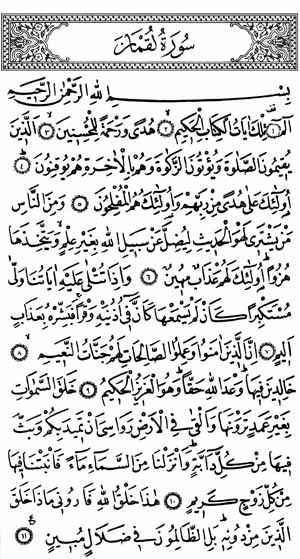 سورة لقمان
بسم الله الرحمن الرحيم
الٓمٓ ١ تلك اٰيات الكتاب الحكيم ٢ هدى ورحمة للمحسنين ٣ الذين
يقيمون الصلوة ويؤتون الزكوة وهم بالاخرة هم يوقنون ٤
اولئك على هدى من ربهم واولئك هم المفلحون ٥ ومن الناس
من يشترى لهو الحديث ليضل عن سبيل الله بغير علم ويتخذها
هزوا اولئك لهم عذاب مهين ٦ واذا تتلى عليه اياتنا ولى
مستكبرا كان لم يسمعها كان فى اذنيه وقرا فبشره بعذاب
اليم ٧ ان الذين امنوا وعملوا الصالحات لهم جنات النعيم ٨
خالدين فيها وعد الله حقا وهو العزيز الحكيم ٩ خلق السموات
بغير عمد ترونها والقى فى الارض رواسى ان تميد بكم وبث
فيها من كل دابة وانزلنا من السماء ماء فانبتنا فيها
من كل زوج كريم ١٠ هذا خلق الله فارونى ماذا خلق
الذين من دونه بل الظالمون فى ضلال مبين ١١